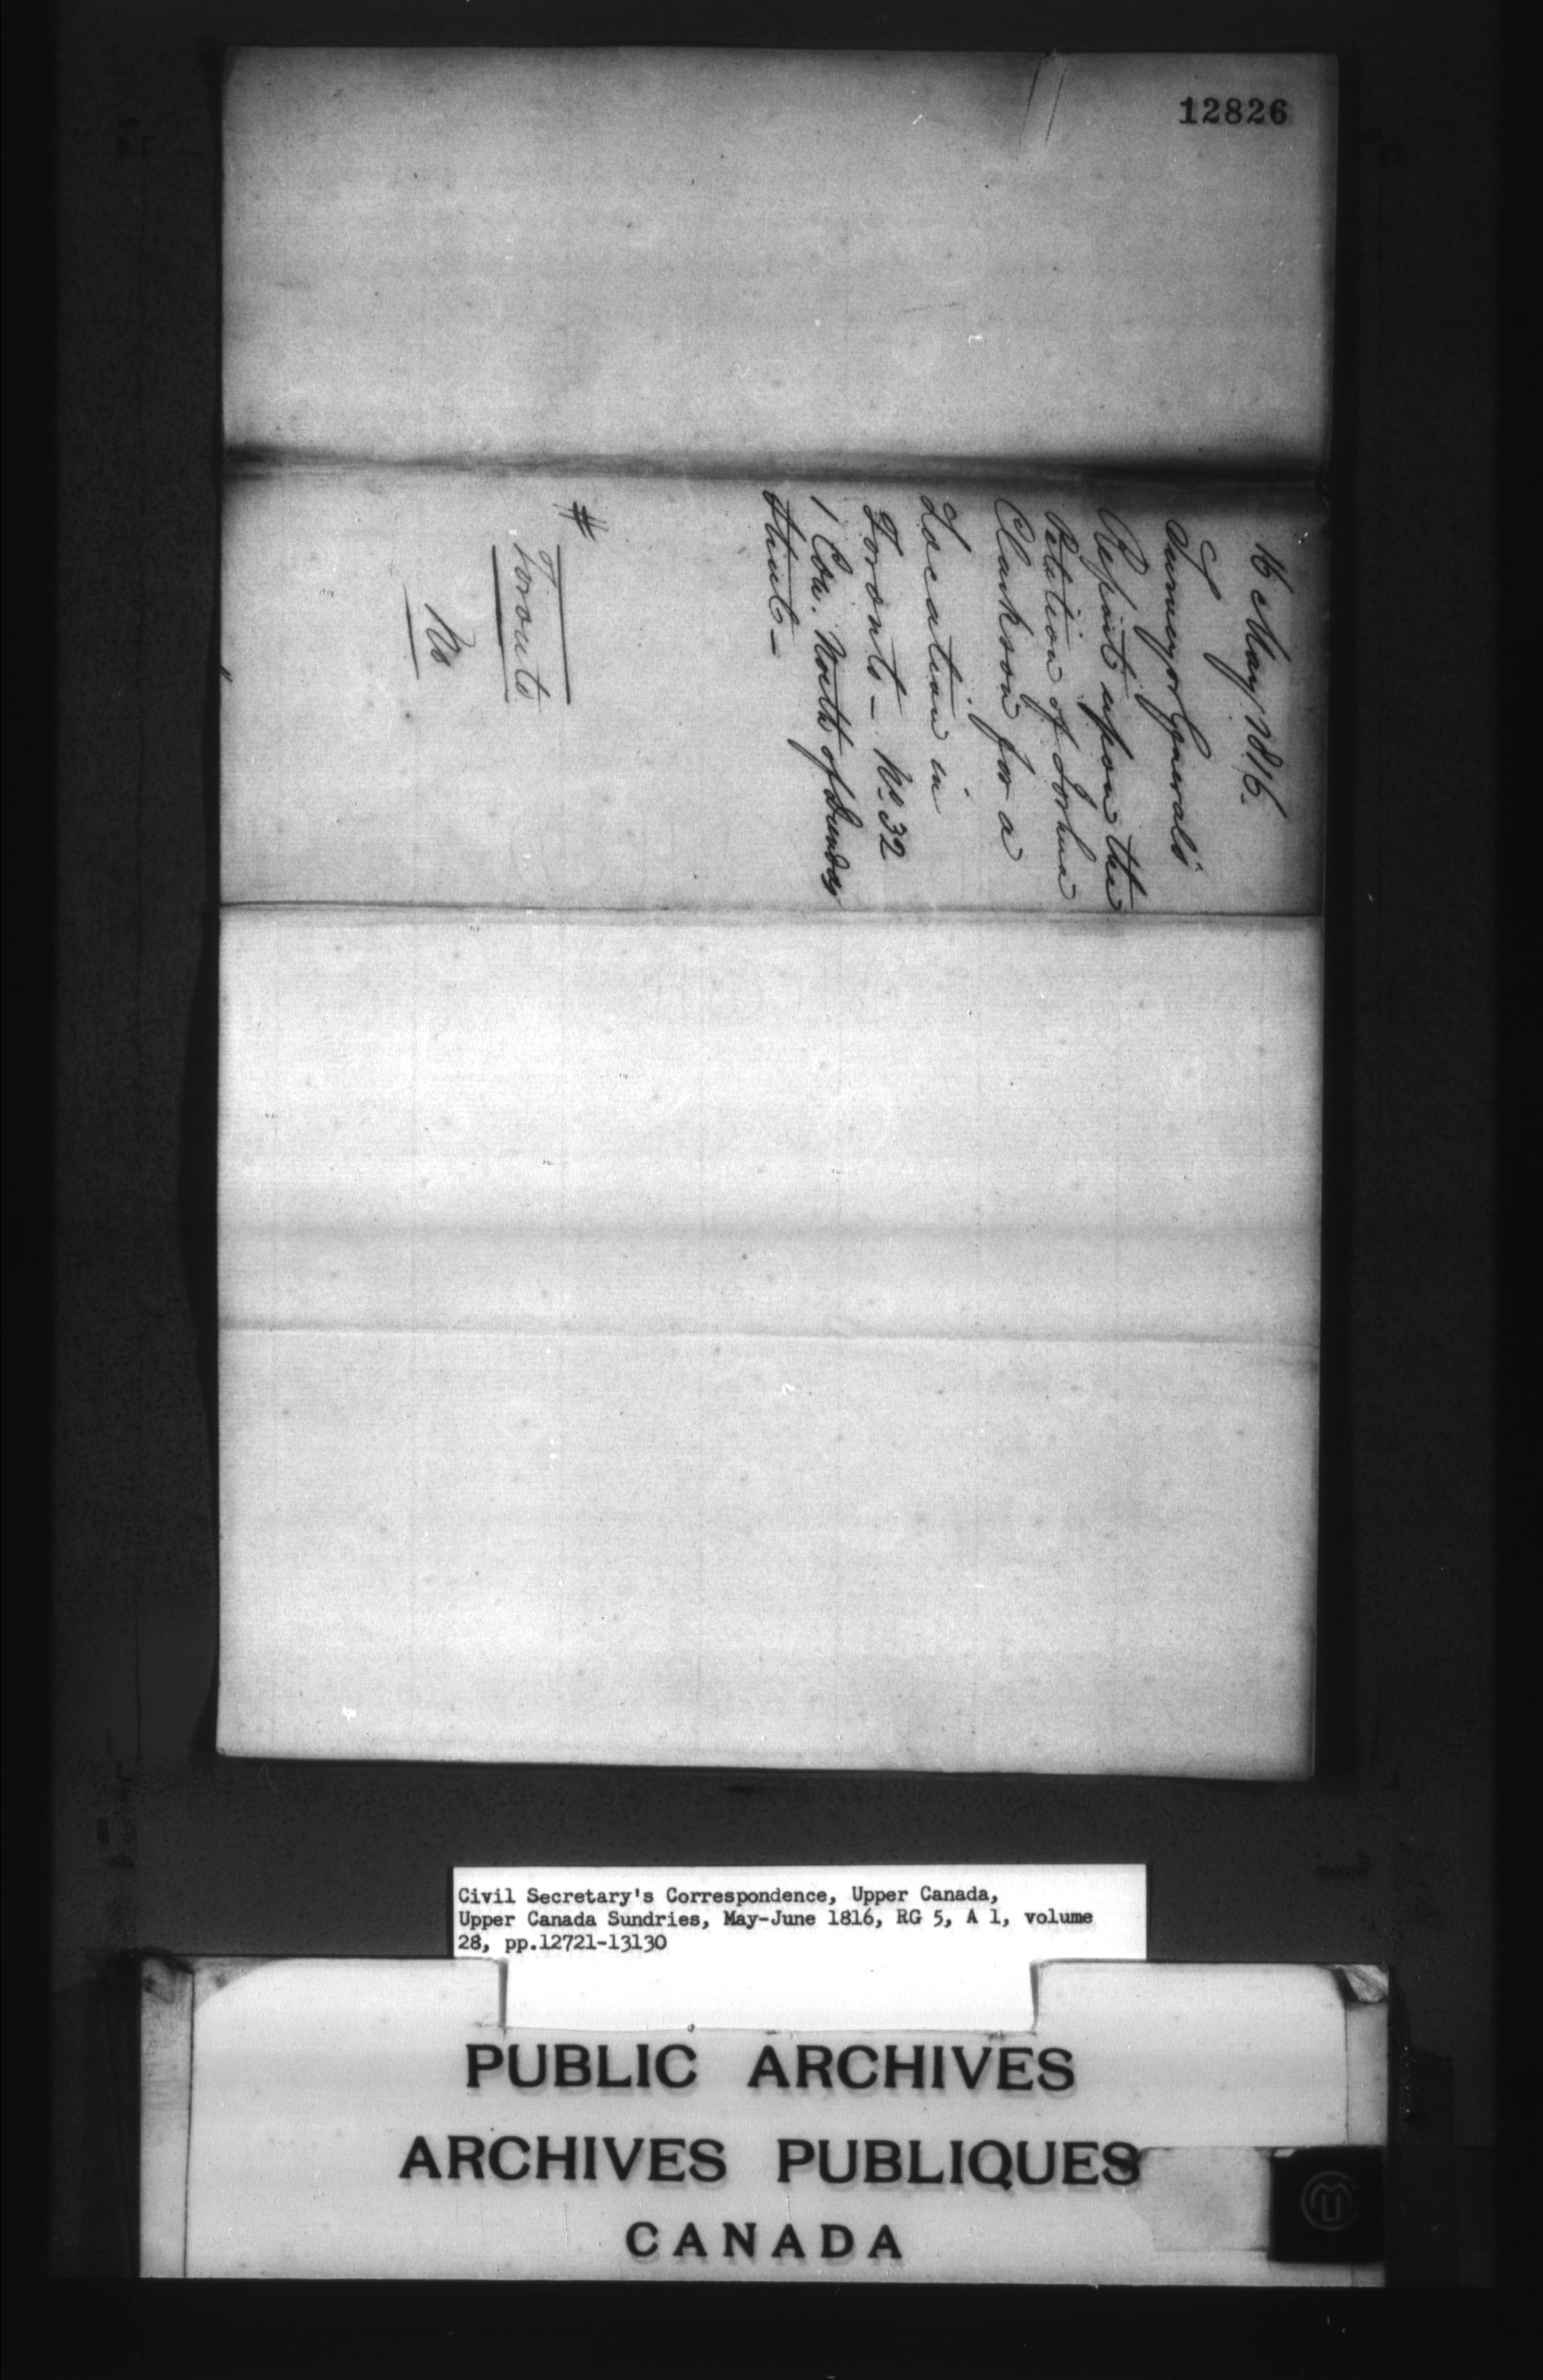 12826
16 May 1816.
Surveyor Generals
Report upon the
Petition of Joshua
Clarkson for a
Location in
Toronto - No. 32
1 Con. North of Dundas
Street -
#
Toronto
Civil Secretary's Correspondence, Upper Canada,
Upper Canada Sundries, May-June 1816, RG 5, A 1, volume
28, pp.12721-13130
PUBLIC ARCHIVES
ARCHIVES PUBLIQUES
CANADA